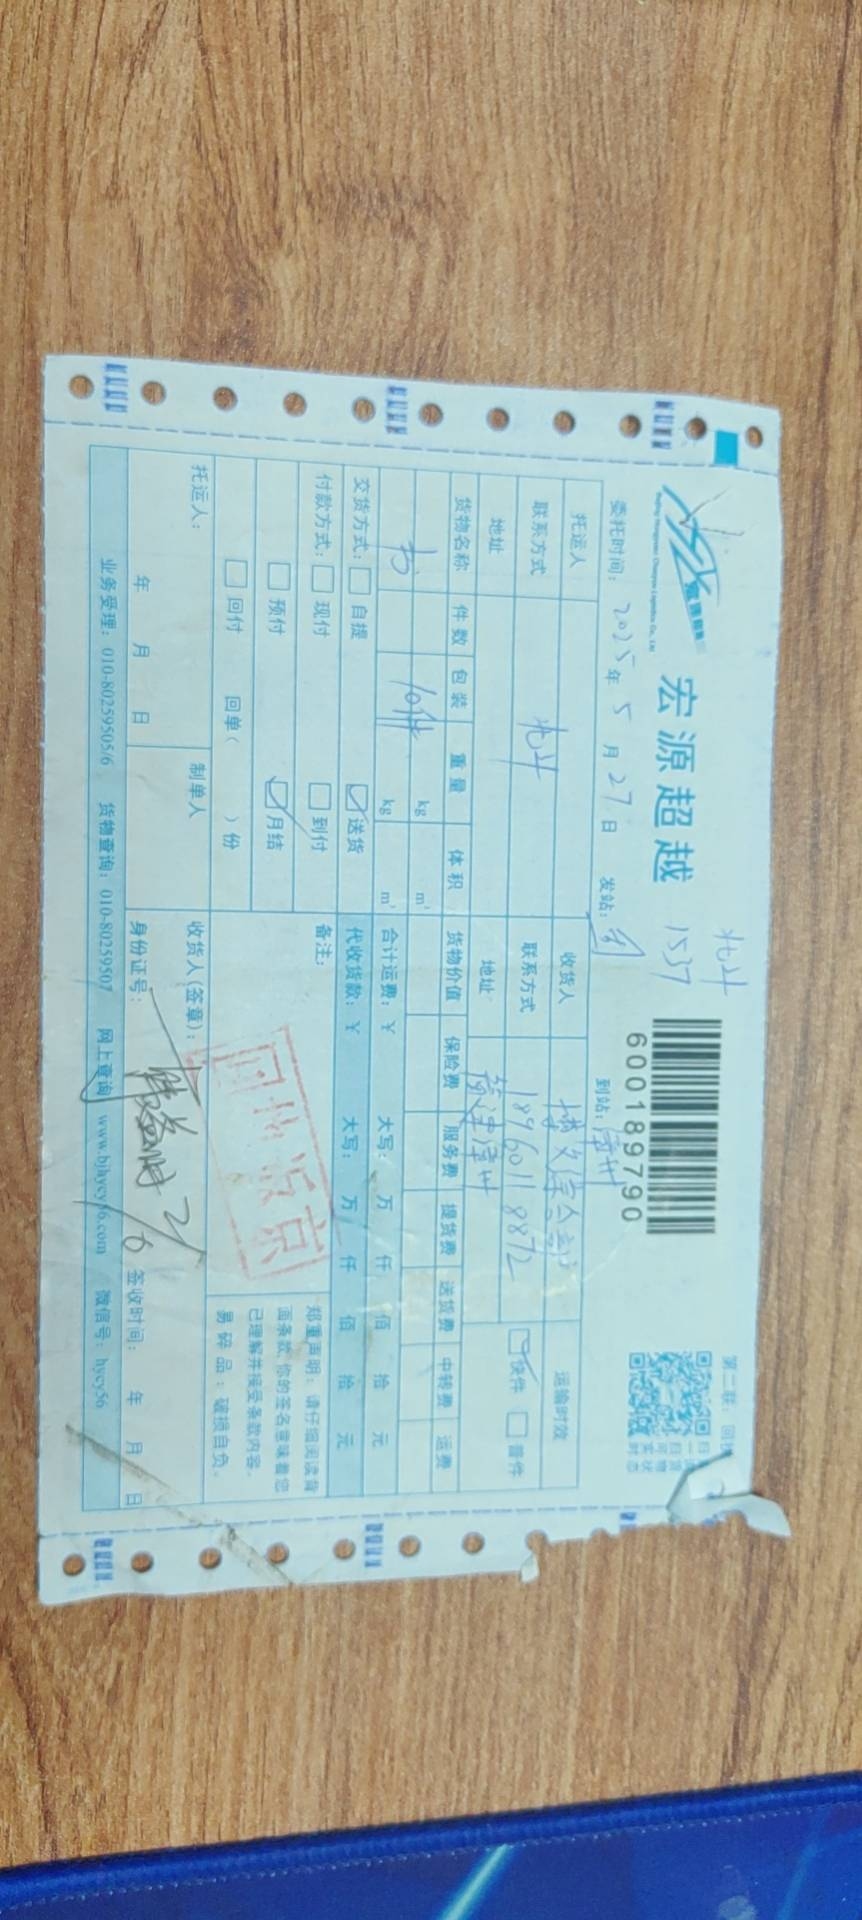 北斗
第二联：回执
宏源超越 1537
600189790
委托时间：2025年5月27日 发站： 到站：漳州
托运人 收货人 博文综合部 运输时效
联系方式 北斗 联系方式 18960118872 快件 普件
地址 地址 福建漳州
货物名称 件数 包装 重量 体积 货物价值 保险费 服务费 提货费 送货费 中转费 运费
kg m³
书 10件 kg m³ 合计运费：￥ 大写： 万 仟 佰 拾 元
交货方式： 自提 送货 代收货款：￥ 大写： 万 仟 佰 拾 元
付款方式： 现付 到付 备注： 郑重声明：请仔细阅读背
预付 月结 面条款，你的签名意味着您
已理解并接受条款内容。
回付 回单（ ）份 易碎品：破损自负。
托运人： 制单人 收货人(签章)：
年 月 日 身份证号： 2/6 签收时间： 年 月 日
业务受理：010-80259505/6 货物查询：010-80259507 网上查询 www.bjhycy56.com 微信号：hycy56